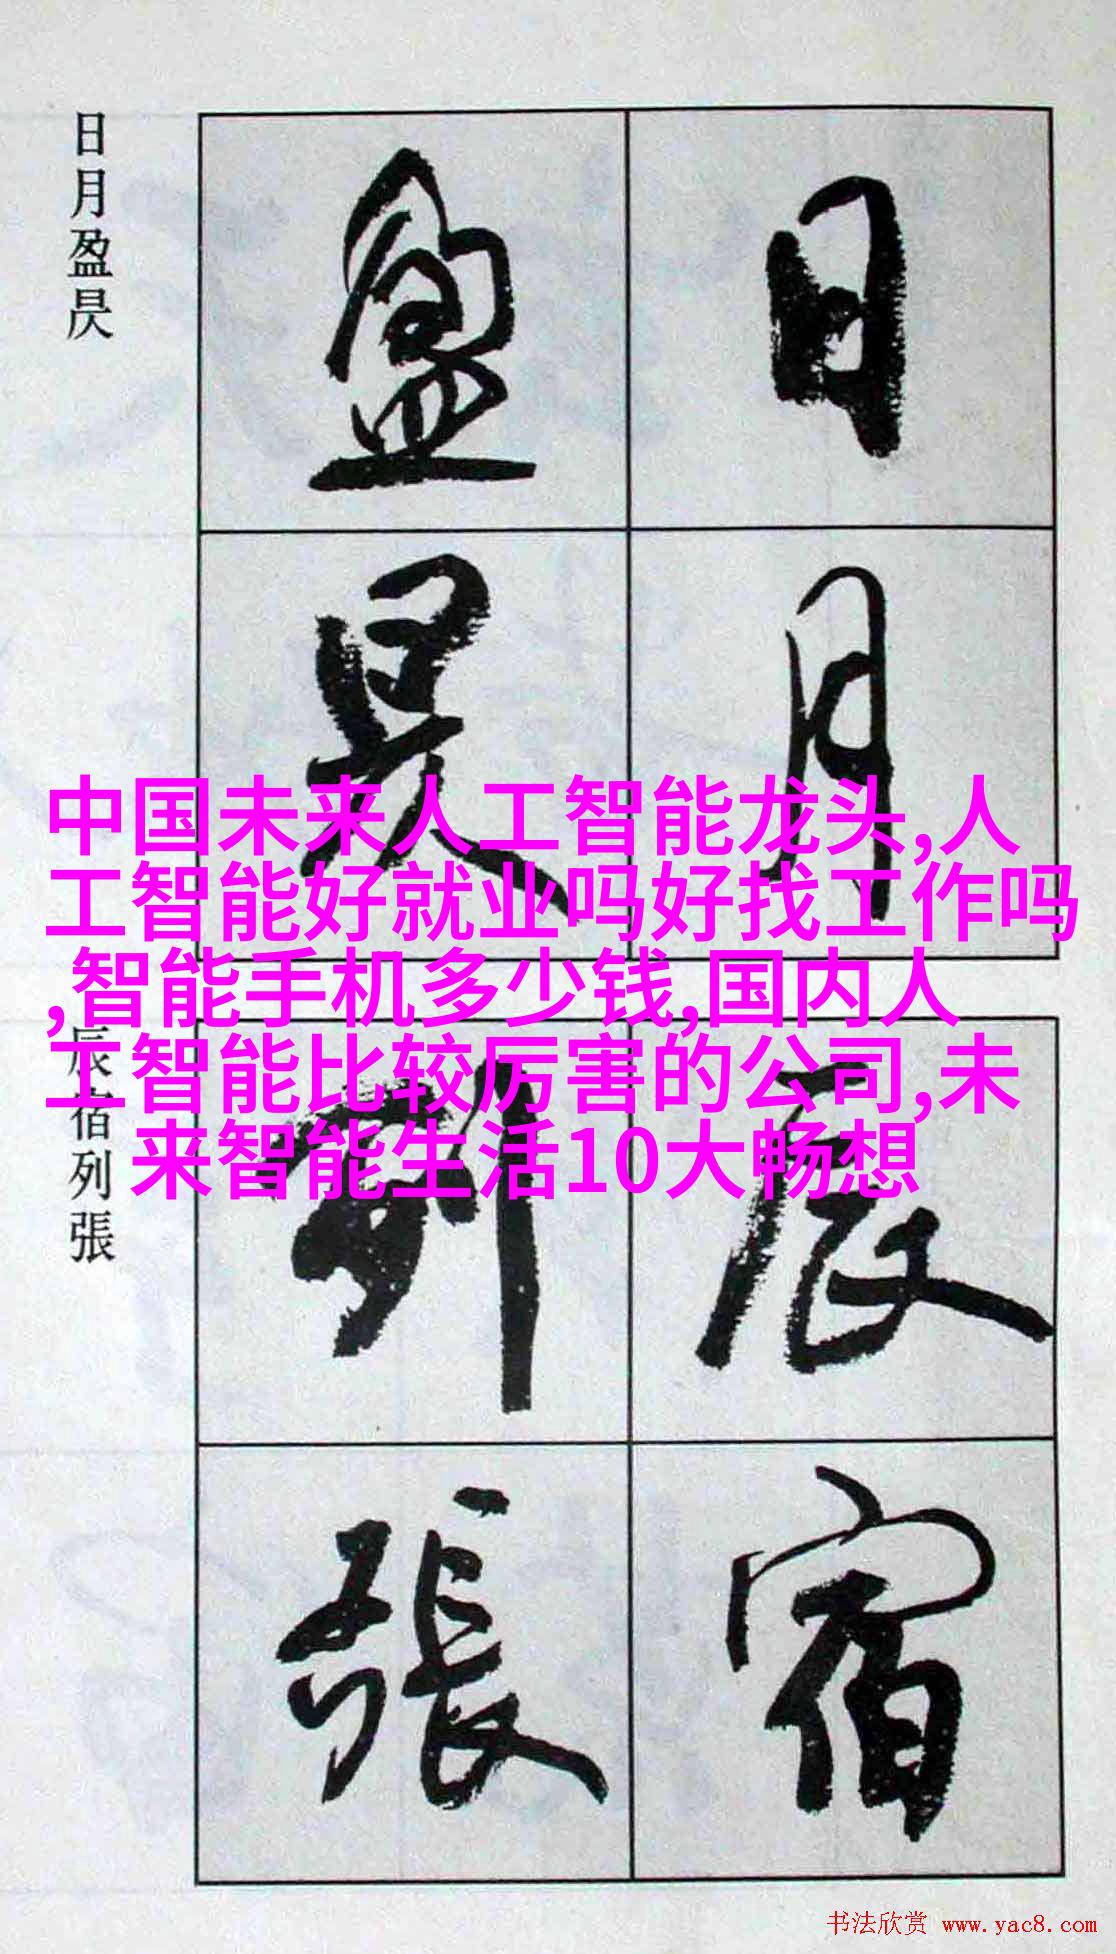 日月盈昃
日月
盈昃
中国未来人工智能龙头,人
工智能好就业吗好找工作吗
,智能手机多少钱,国内人
工智能比较厉害的公司,未
来智能生活10大畅想
辰宿列張
辰宿
列張
书法欣赏 www.yac8.com